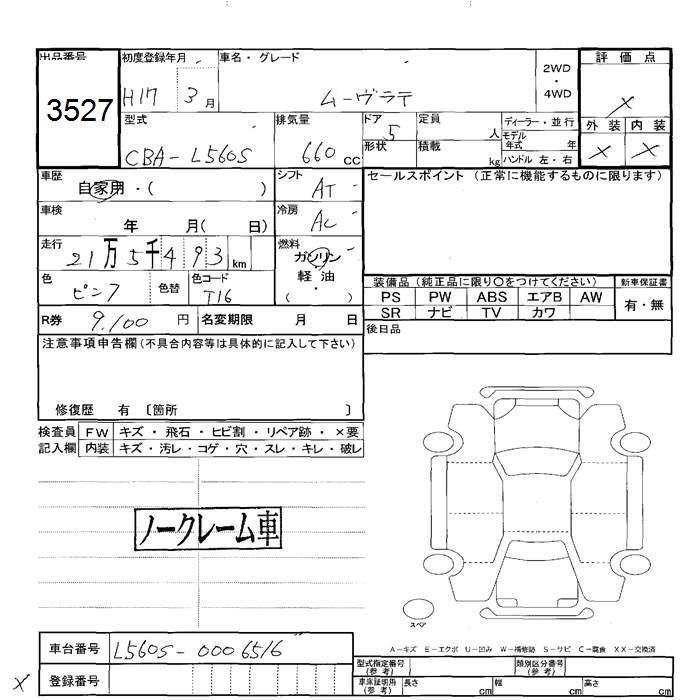 出品番号 初度登録年月 車名・グレード 2WD ・ 4WD 評価点
3527 H17 3月 ムーヴラテ X
型式 排気量 ドア 定員 人 ディーラー・並行 外装 内装
CBA-L560S 660cc 5 形状 積載 kg モデル年式 年 X X
ハンドル 左・右
車歴 自家用・( ) シフト AT セールスポイント (正常に機能するものに限ります)
車検 年 月( 日) 冷房 AC
走行 21万5千493km 燃料 ガソリン
色 ピンク 色替 色コード T16 軽油 ( )
装備品 (純正品に限り○をつけてください) 新車保証書
PS PW ABS エアB AW 有・無
SR ナビ TV カワ
R券 9,100円 名変期限 月 日 後日品
注意事項申告欄 (不具合内容等は具体的に記入して下さい)
修復歴 有 〔箇所 〕
検査員 FW キズ・飛石・ヒビ割・リペア跡・×要
記入欄 内装 キズ・汚レ・コゲ・穴・スレ・キレ・破レ
ノークレーム車
スペア
A-キズ E-エクボ U-凹み W-補修跡 S-サビ C-腐食 XX-交換済
車台番号 L560S-0006516
型式指定番号 (参考) 類別区分番号 (参考)
X 登録番号 車庫証明用 (参考) 長さ cm 幅 cm 高さ cm